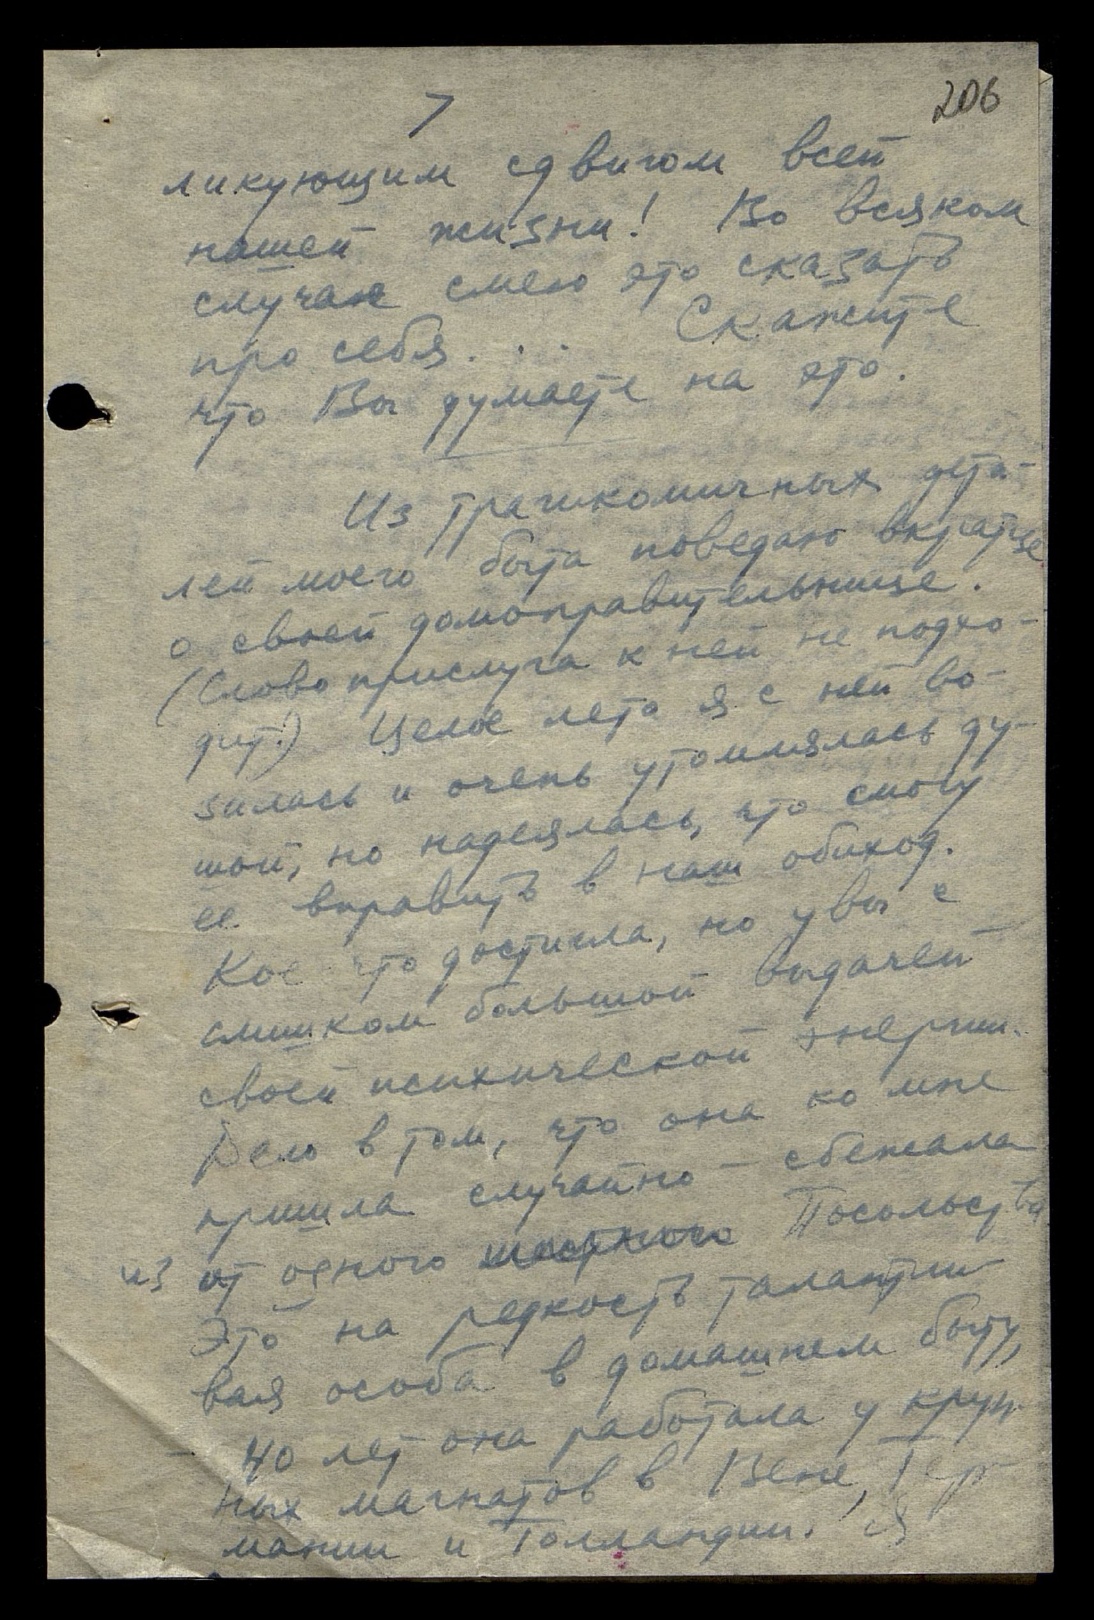 7
206
ликующим сдвигом всей
нашей жизни! Во всяком
случае смею это сказать
про себя... Скажите
что Вы думаете на это.
Из трагикомичных дета-
лей моего быта поведаю вкратце
о своей домоправительнице.
(Слово прислуга к ней не подхо-
дит!) Целое лето я с ней во-
зилась и очень утомлялась ду-
шой, но надеялась, что смогу
ее вправить в наш обиход.
Кое что достигла, но увы с
слишком большой выдачей
своей психической энергии.
Дело в том, что она ко мне
пришла случайно – сбежала
из от одного местного Посольства
Это на редкость талантли-
вая особа в домашнем быту,
40 лет она работала у круп-
ных магнатов в Вене, Гер-
мании и Голландии. Я